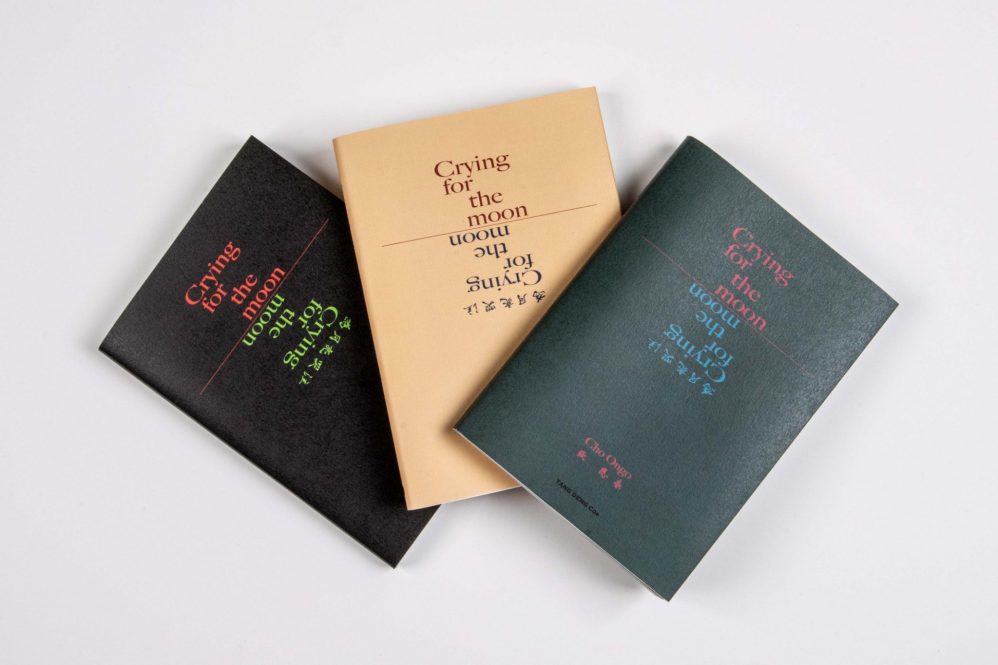 Crying
for
the
moon
Crying
for
the
moon
為月亮哭泣
Crying
for
the
moon
Crying
for
the
moon
為月亮哭泣
Crying
for
the
moon
Crying
for
the
moon
為月亮哭泣
Cho Ongo
TANG DENG Co.